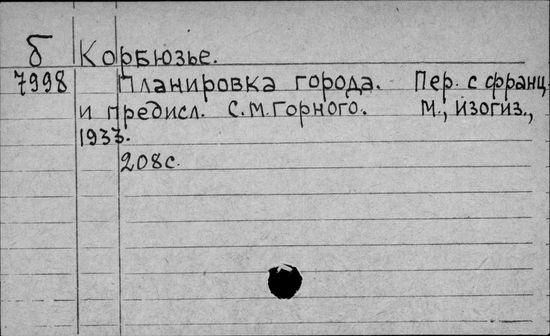 б Корбюзье.
7998 Планировка города. Пер. с франц.
и предисл. С.М.Горного. М., Изогиз.,
1933.
208с.